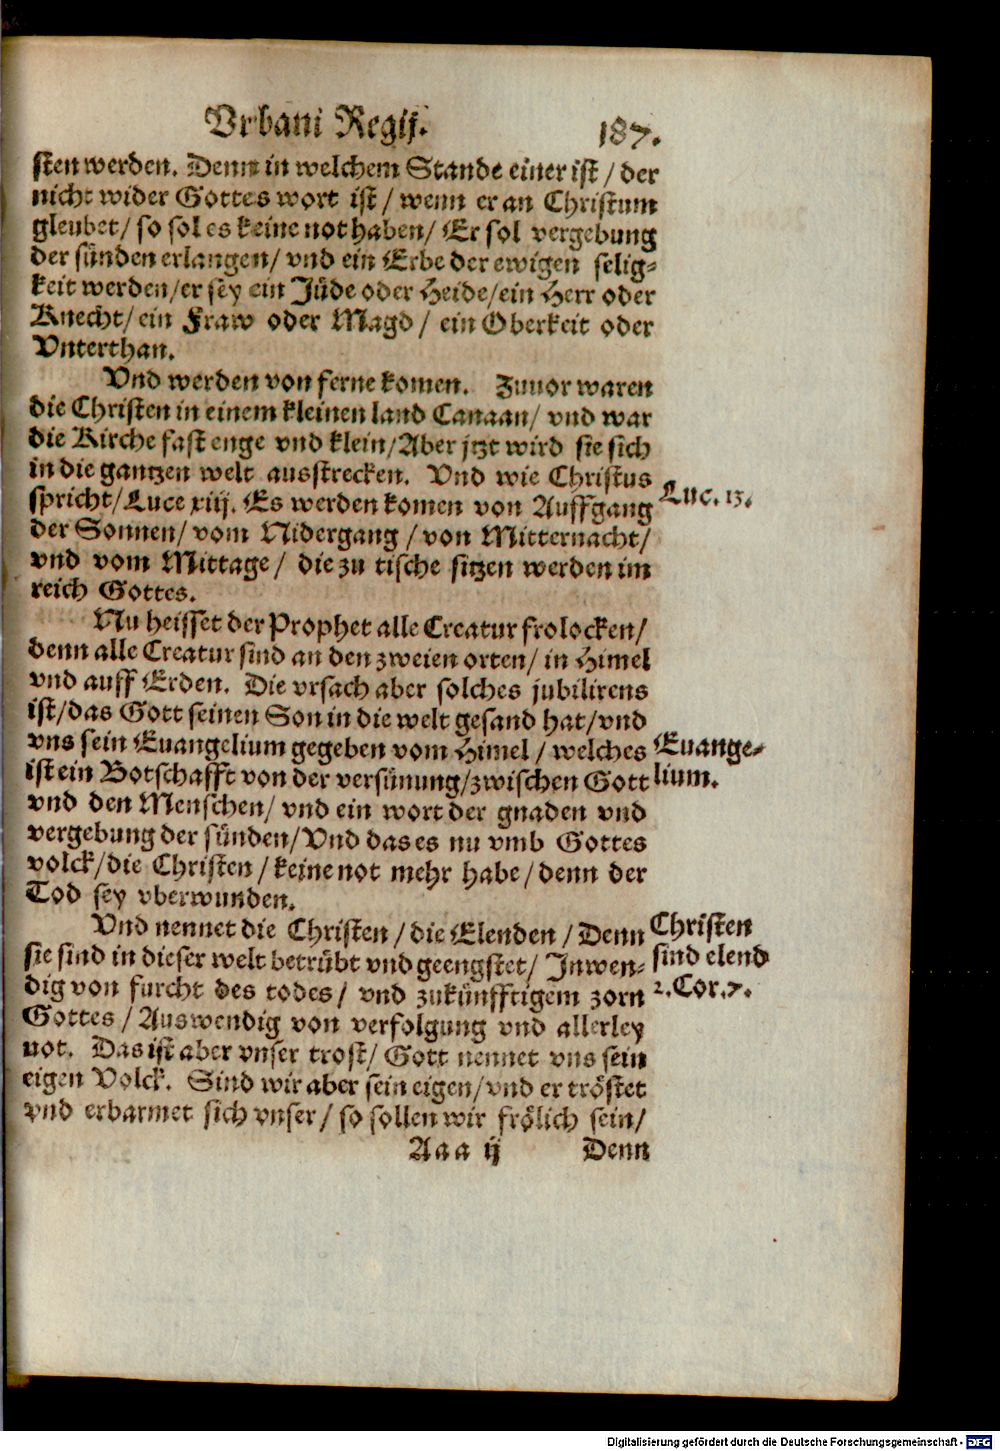 Vrbani Regij. 187.
sten werden. Denn in welchem Stande einer ist / der
nicht wider Gottes wort ist / wenn er an Christum
gleubet / so sol es keine not haben / Er sol vergebung
der sünden erlangen / vnd ein Erbe der ewigen selig-
keit werden / er sey ein Jüde oder Heide / ein Herr oder
Knecht / ein Fraw oder Magd / ein Oberkeit oder
Vnterthan.
Vnd werden von ferne komen. Zuuor waren
die Christen in einem kleinen land Canaan / vnd war
die Kirche fast enge vnd klein / Aber jtzt wird sie sich
in die gantzen welt ausstrecken. Vnd wie Christus
spricht / Luce xiij. Es werden komen von Auffgang
Luc. 13.
der Sonnen / vom Nidergang / von Mitternacht /
vnd vom Mittage / die zu tische sitzen werden im
reich Gottes.
Nu heisset der Prophet alle Creatur frolocken /
denn alle Creatur sind an den zweien orten / in Himel
vnd auff Erden. Die vrsach aber solches jubilirens
ist / das Gott seinen Son in die welt gesand hat / vnd
vns sein Euangelium gegeben vom Himel / welches
Euange-
ist ein Botschafft von der versünung / zwischen Gott
lium.
vnd den Menschen / vnd ein wort der gnaden vnd
vergebung der sünden / Vnd das es nu vmb Gottes
volck / die Christen / keine not mehr habe / denn der
Tod sey vberwunden.
Vnd nennet die Christen / die Elenden / Denn
Christen
sie sind in dieser welt betrübt vnd geengstet / Inwen-
sind elend
dig von furcht des todes / vnd zukünfftigem zorn
2. Cor. 7.
Gottes / Auswendig von verfolgung vnd allerley
not. Das ist aber vnser trost / Gott nennet vns sein
eigen Volck. Sind wir aber sein eigen / vnd er tröstet
vnd erbarmet sich vnser / so sollen wir frölich sein /
Aaa ij Denn
Digitalisierung gefördert durch die Deutsche Forschungsgemeinschaft - DFG